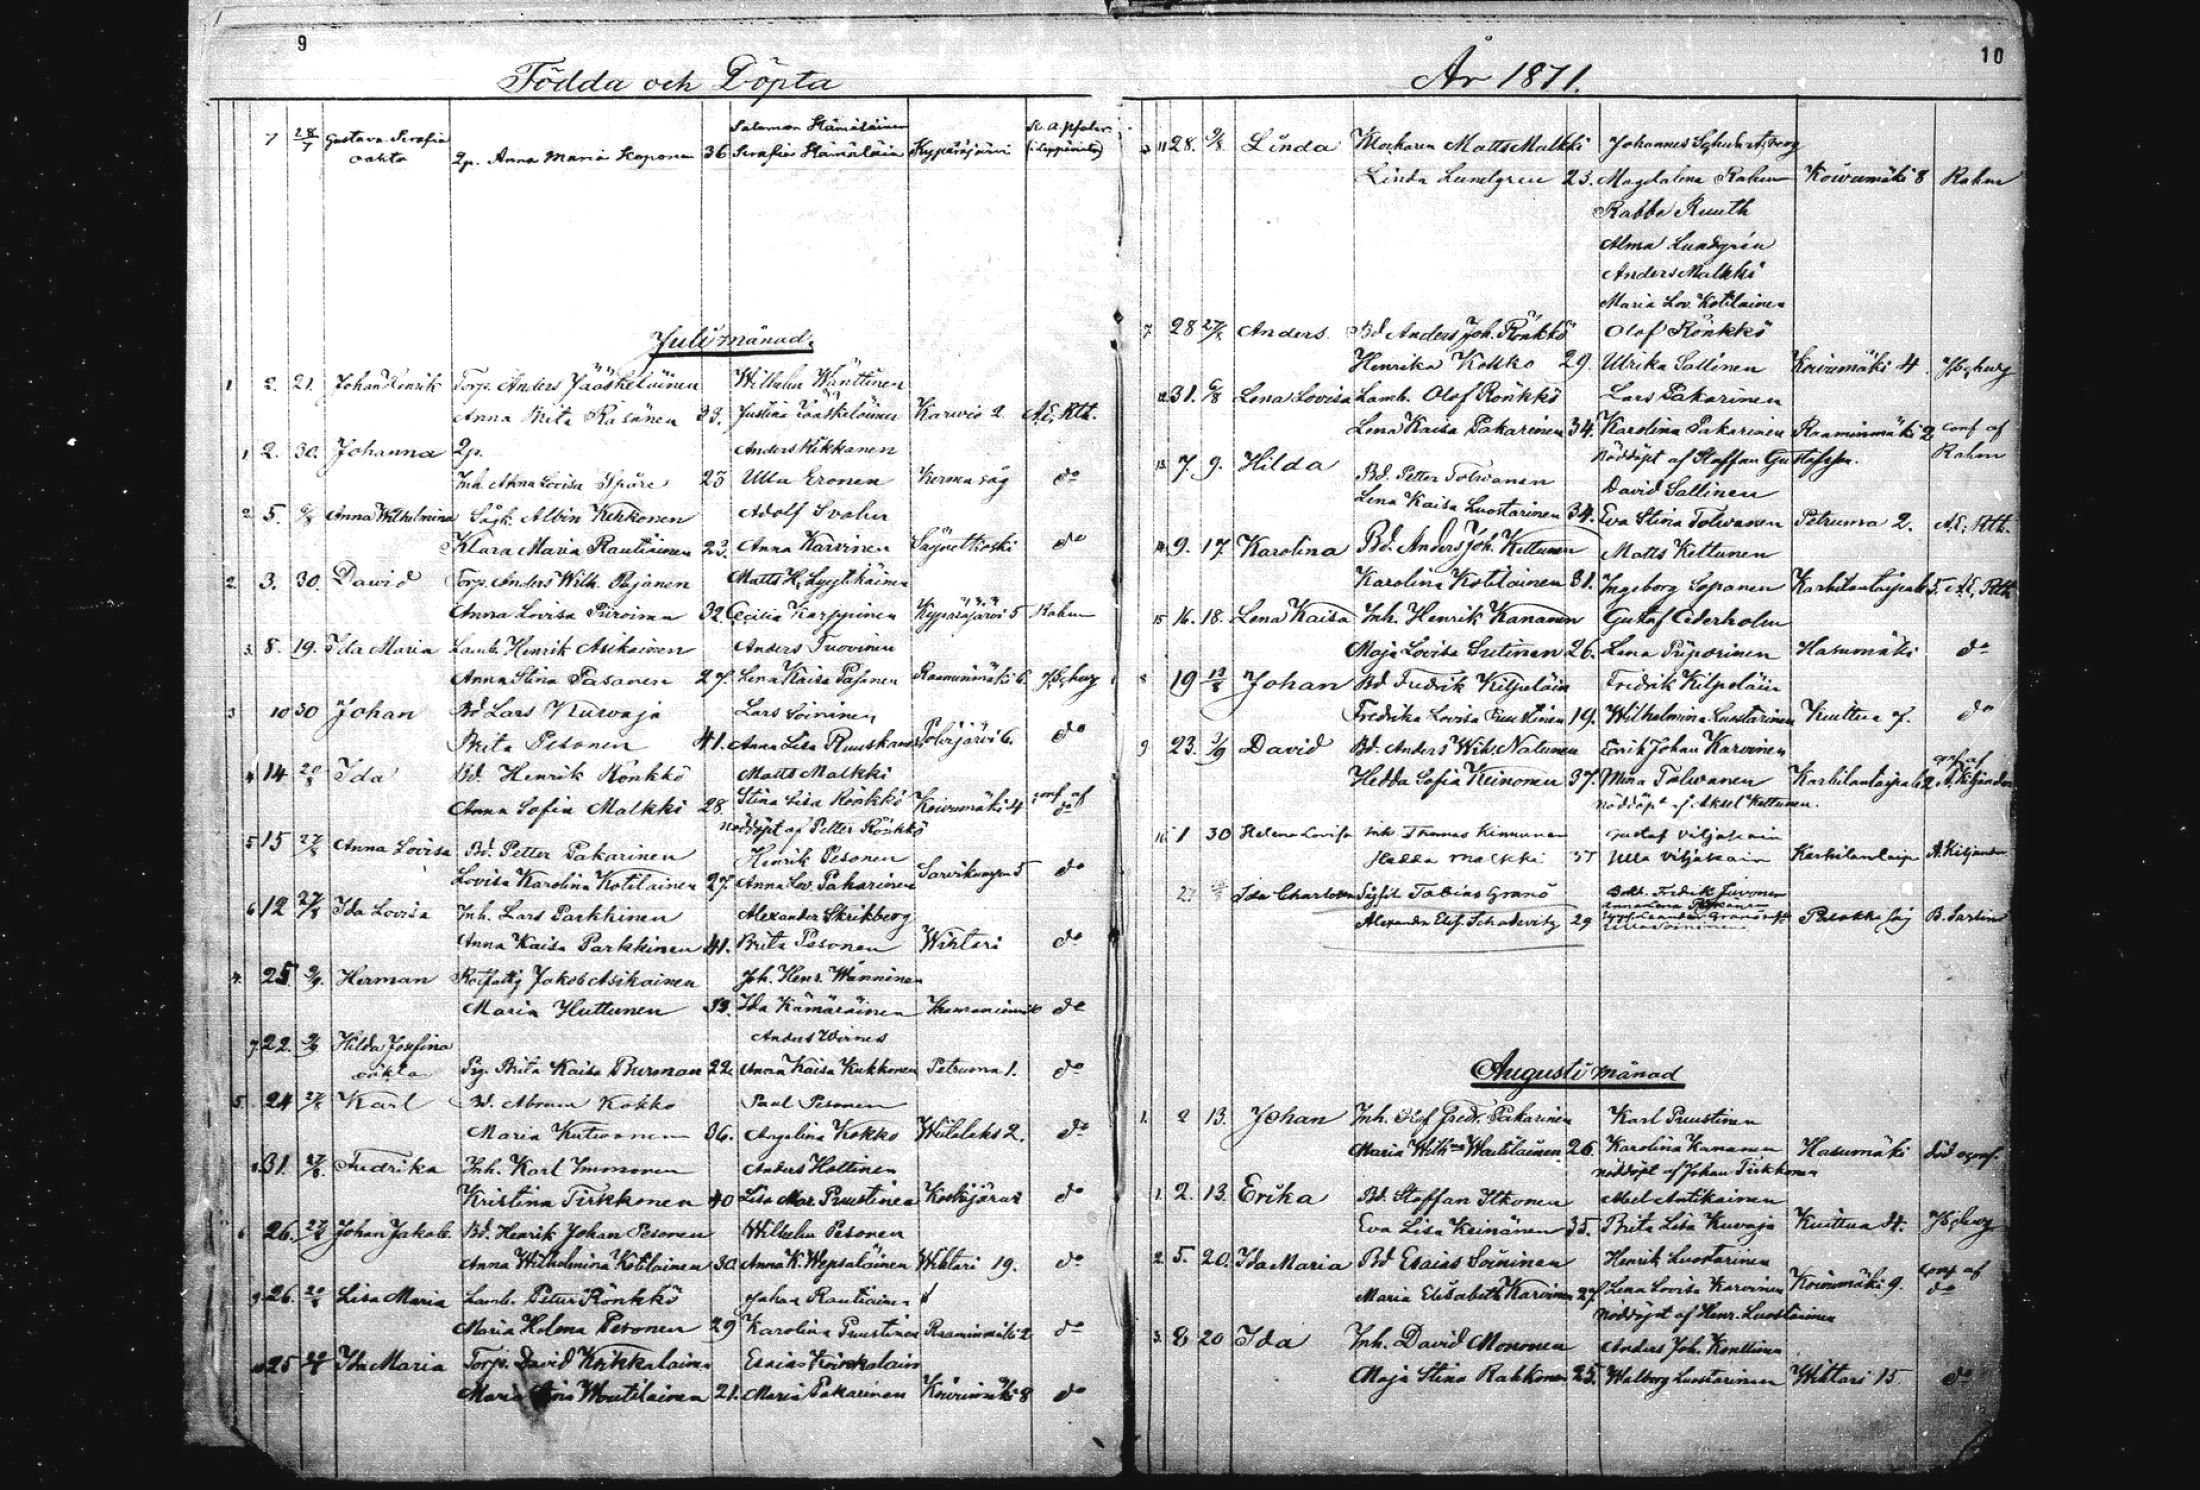 9
Födda och Döpta
7 28/7 Gustava Serafia Salomon Hämäläinen
oäkta Qp. Anna Maria Koponen 36 Serafia Hämäläin Kypäräjärvi
Juli månad.
1 2. 21. Johan Henrik Torp. Anders Jääskeläinen Wilhelm Wänttinen
Anna Brita Räsänen 33. Justina Jääskeläinen Karvio 2. A.E. Rth.
1 2. 30. Johanna Qp. Anders Kikkanen
Inh. Anna Lovisa Spåre 23 Ulla Eronen Kerma såg do
2. 5. 6/8 Anna Wilhelmina Sågk. Albin Kekkonen Adolf Svahn
Klara Maria Rautiainen 23. Anna Karvinen do
2. 3. 30. David Torp. Anders Wilh. Pajanen Matts H. Lyytikäinen
Anna Lovisa Piiroinen 32. Cecilia Karppinen Kypäräjärvi 5 Rahm
3. 8. 19. Ida Maria Lamb. Henrik Asikainen Anders Tuovinen
Anna Stina Pasanen 27. Lena Kaisa Pasanen Raaminmäki 6.
3 10 30 Johan Bd Lars Kuwaja Lars Soininen
Brita Pesonen 41. Anna Lisa Ruuskanen Polvijärvi 6. do
4 14 20/8 Ida Bd. Henrik Rönkkö Matts Malkki
Anna Sofia Malkki 28. Stina Lisa Rönkkö Koivumäki 4 conf af do
nöddöpt af Petter Rönkkö
5 15 27/8 Anna Lovisa Bd. Petter Pakarinen Henrik Pesonen
Lovisa Karolina Kotilainen 27. Anna Lov. Pakarinen Sarvikumpu 5 do
6 12 27/8 Ida Lovisa Inh. Lars Parkkinen Alexander Skrikberg
Anna Kaisa Parkkinen 41. Brita Pesonen Wihtari do
4. 25 Herman Jakob Asikainen Joh. Henr. Wänninen
Maria Huttunen 33. Ida Kämäräinen do
7. 22. Hilda Josefina Anders Wirnes
oäkta Pig. Brita Kaisa Burman 22 Anna Kaisa Kukkonen Petruma 1. do
5 24 27/8 Karl Bd. Abram Kokko Paul Pesonen
Maria Kutwonen 36. Angelina Kokko Wiitalaks 2. do
31. 27/8 Fredrika Inh. Karl Immonen Anders Hottinen
Kristina Tirkkonen 40 Lisa Mar. Puustinen Koskijärvi do
6 26. 27/8 Johan Jakob. Bd. Henrik Johan Pesonen Wilhelm Pesonen
Anna Wilhelmina Kotilainen 30 Anna K. Wepsäläinen Wihtari 19. do
9. 26. 20/8 Lisa Maria Lamb. Petter Rönkkö Johan Rautiainen
Maria Helena Pesonen 29 Karolina Puustinen Raaminmäki 2 do
10 25 Ida Maria Torp. David Koikkalainen Esaias Koikkalain
Maria Woutilainen 21. Maria Pakarinen Koivumäki 8 do
10
År 1871.
11 28. 9/8 Linda Klockaren Matts Malkki Johannes Schwartzberg
Linda Lundgren 23. Magdalena Rahm Koivumäki 8 Rahm
Rabbe Ruuth
Alma Lundgren
Anders Malkki
Maria Lov. Kotilainen
7 28 27/8 Anders Bd Anders Joh. Rönkkö Olof Rönkkö
Henrika Kokko 29. Ulrika Sallinen Koivumäki 4.
12. 31. 6/8 Lena Lovisa Lamb. Olof Rönkkö Lars Pakarinen
Lena Kaisa Pakarinen 34. Karolina Pakarinen Raaminmäki 2 conf af Rahm
nöddöpt af Staffan Gustafsson.
13. 7 9. Hilda Bd. Petter Tolwanen David Sallinen
Lena Kaisa Luostarinen 34. Eva Stina Tolwanen Petruma 2. A.E. Rth.
14. 9. 17. Karolina Bd. Anders Joh. Kettunen Matts Kettunen
Karolina Kotilainen 31. Ingeborg Sopanen Karhilantaipale 5. A.E. Rth
15 16. 18. Lena Kaisa Inh. Henrik Kananen Gustaf Cederholm
Maja Lovisa Sutinen 26. Lena Piiparinen Hasumäki do
8 19 13/8 Johan Bd Fredrik Kilpeläin Fredrik Kilpeläin
Fredrika Lovisa Puustinen 19. Wilhelmina Luostarinen Kuittua 7. do
9 23. 3/9 David Bd. Anders Wilh. Natunen Enrik Johan Karvinen
Hedda Sofia Keinonen 37. Mina Tolwanen Karhilantaipale 2 conf af A. Kiljander
nöddöpt af Aksel Kettunen.
16. 1 30 Helena Lovisa Inh. Thomas Kinnunen Gustaf Viljakain
Hedda Malkki 37 Ulla Viljakain Karhilantaip A. Kiljander
27 Ida Charlotta Tobias Granö Fredrik Juvonen
Alexandra Elis. Schadevitz 29 Palokki såg B. Sarlin
Augusti månad
1. 2 13. Johan Inh. Olof Fredr. Pakarinen Karl Puustinen
Maria Wilh:na Woutilainen 26. Karolina Kananen Hasumäki
nöddöpt af Johan Tirkkonen
1. 2. 13. Erika Bd. Staffan Itkonen Abel Antikainen
Eva Lisa Keinänen 35. Brita Lisa Kuvaja Kuittua 34.
2. 5. 20. Ida Maria Bd Esaias Soininen Henrik Luostarinen
Maria Elisabeth Karvinen 27 Lena Lovisa Karvinen Koivumäki 9. conf af do
nöddöpt af Henr. Luostarinen
3. 8 20 Ida Inh. David Mononen Anders Joh. Konttinen
Maja Stina Rahkonen 25. Walborg Luostarinen Wihtari 15. do